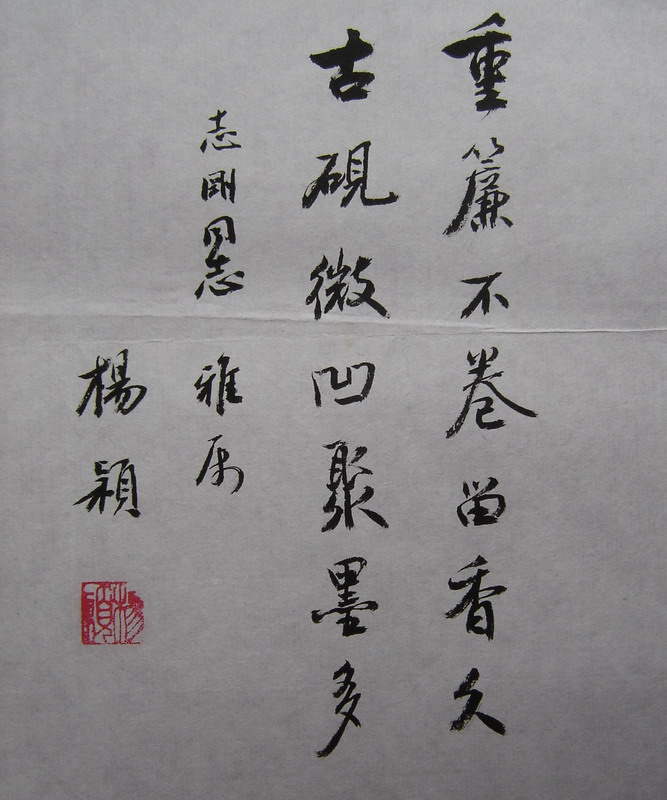 重簾不卷留香久
古硯微凹聚墨多
志剛同志 雅属
楊穎